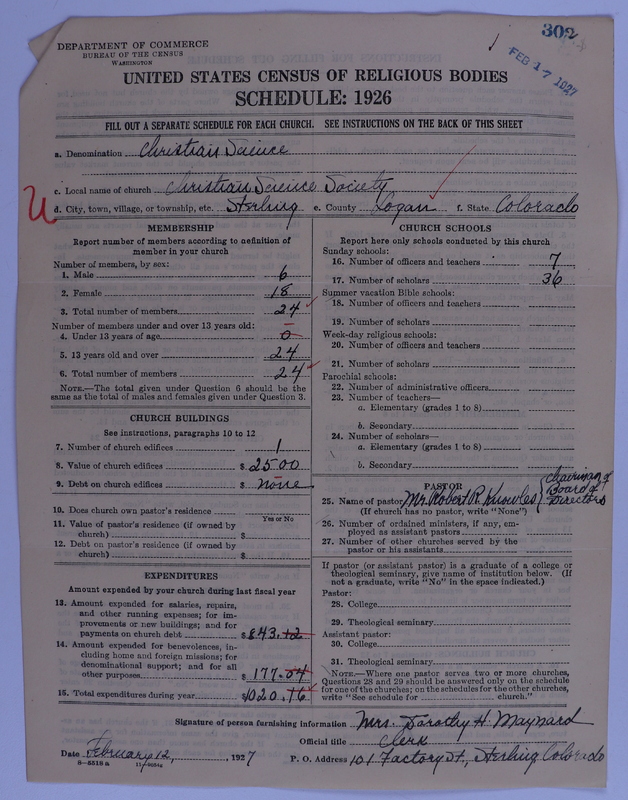 302
FEB 17 1927
DEPARTMENT OF COMMERCE
BUREAU OF THE CENSUS
WASHINGTON
UNITED STATES CENSUS OF RELIGIOUS BODIES
SCHEDULE: 1926
FILL OUT A SEPARATE SCHEDULE FOR EACH CHURCH. SEE INSTRUCTIONS ON THE BACK OF THIS SHEET
a. Denomination Christian Science
c. Local name of church Christian Science Society
U d. City, town, village, or township, etc. Sterling e. County Logan f. State Colorado
MEMBERSHIP
Report number of members according to definition of
member in your church
Number of members, by sex:
1. Male 6
2. Female 18
3. Total number of members 24
Number of members under and over 13 years old:
4. Under 13 years of age 0
5. 13 years old and over 24
6. Total number of members 24
NOTE.—The total given under Question 6 should be the
same as the total of males and females given under Question 3.
CHURCH BUILDINGS
See instructions, paragraphs 10 to 12
7. Number of church edifices 1
8. Value of church edifices $ 2500
9. Debt on church edifices $ none
10. Does church own pastor's residence
Yes or No
11. Value of pastor's residence (if owned by
church) $
12. Debt on pastor's residence (if owned by
church) $
EXPENDITURES
Amount expended by your church during last fiscal year
13. Amount expended for salaries, repairs,
and other running expenses; for im-
provements or new buildings; and for
payments on church debt $ 843.12
14. Amount expended for benevolences, in-
cluding home and foreign missions; for
denominational support; and for all
other purposes $ 177.04
15. Total expenditures during year $ 1020.16
CHURCH SCHOOLS
Report here only schools conducted by this church
Sunday schools:
16. Number of officers and teachers 7
17. Number of scholars 36
Summer vacation Bible schools:
18. Number of officers and teachers
19. Number of scholars
Week-day religious schools:
20. Number of officers and teachers
21. Number of scholars
Parochial schools:
22. Number of administrative officers
23. Number of teachers—
a. Elementary (grades 1 to 8)
b. Secondary
24. Number of scholars—
a. Elementary (grades 1 to 8)
b. Secondary
PASTOR
25. Name of pastor Mr. Robert R. Knowles { Chairman of Board of Directors
(If church has no pastor, write "None")
26. Number of ordained ministers, if any, em-
ployed as assistant pastors
27. Number of other churches served by the
pastor or his assistants
If pastor (or assistant pastor) is a graduate of a college or
theological seminary, give name of institution below. (If
not a graduate, write "No" in the space indicated.)
Pastor:
28. College
29. Theological seminary
Assistant pastor:
30. College
31. Theological seminary
NOTE.—Where one pastor serves two or more churches,
Questions 28 and 29 should be answered only on the schedule
for one of the churches; on the schedules for the other churches,
write "See schedule for church."
Signature of person furnishing information Mrs. Dorothy H. Maynard
Official title Clerk
Date February 12, 1927 P. O. Address 101 Factory St., Sterling Colorado
8-5518a